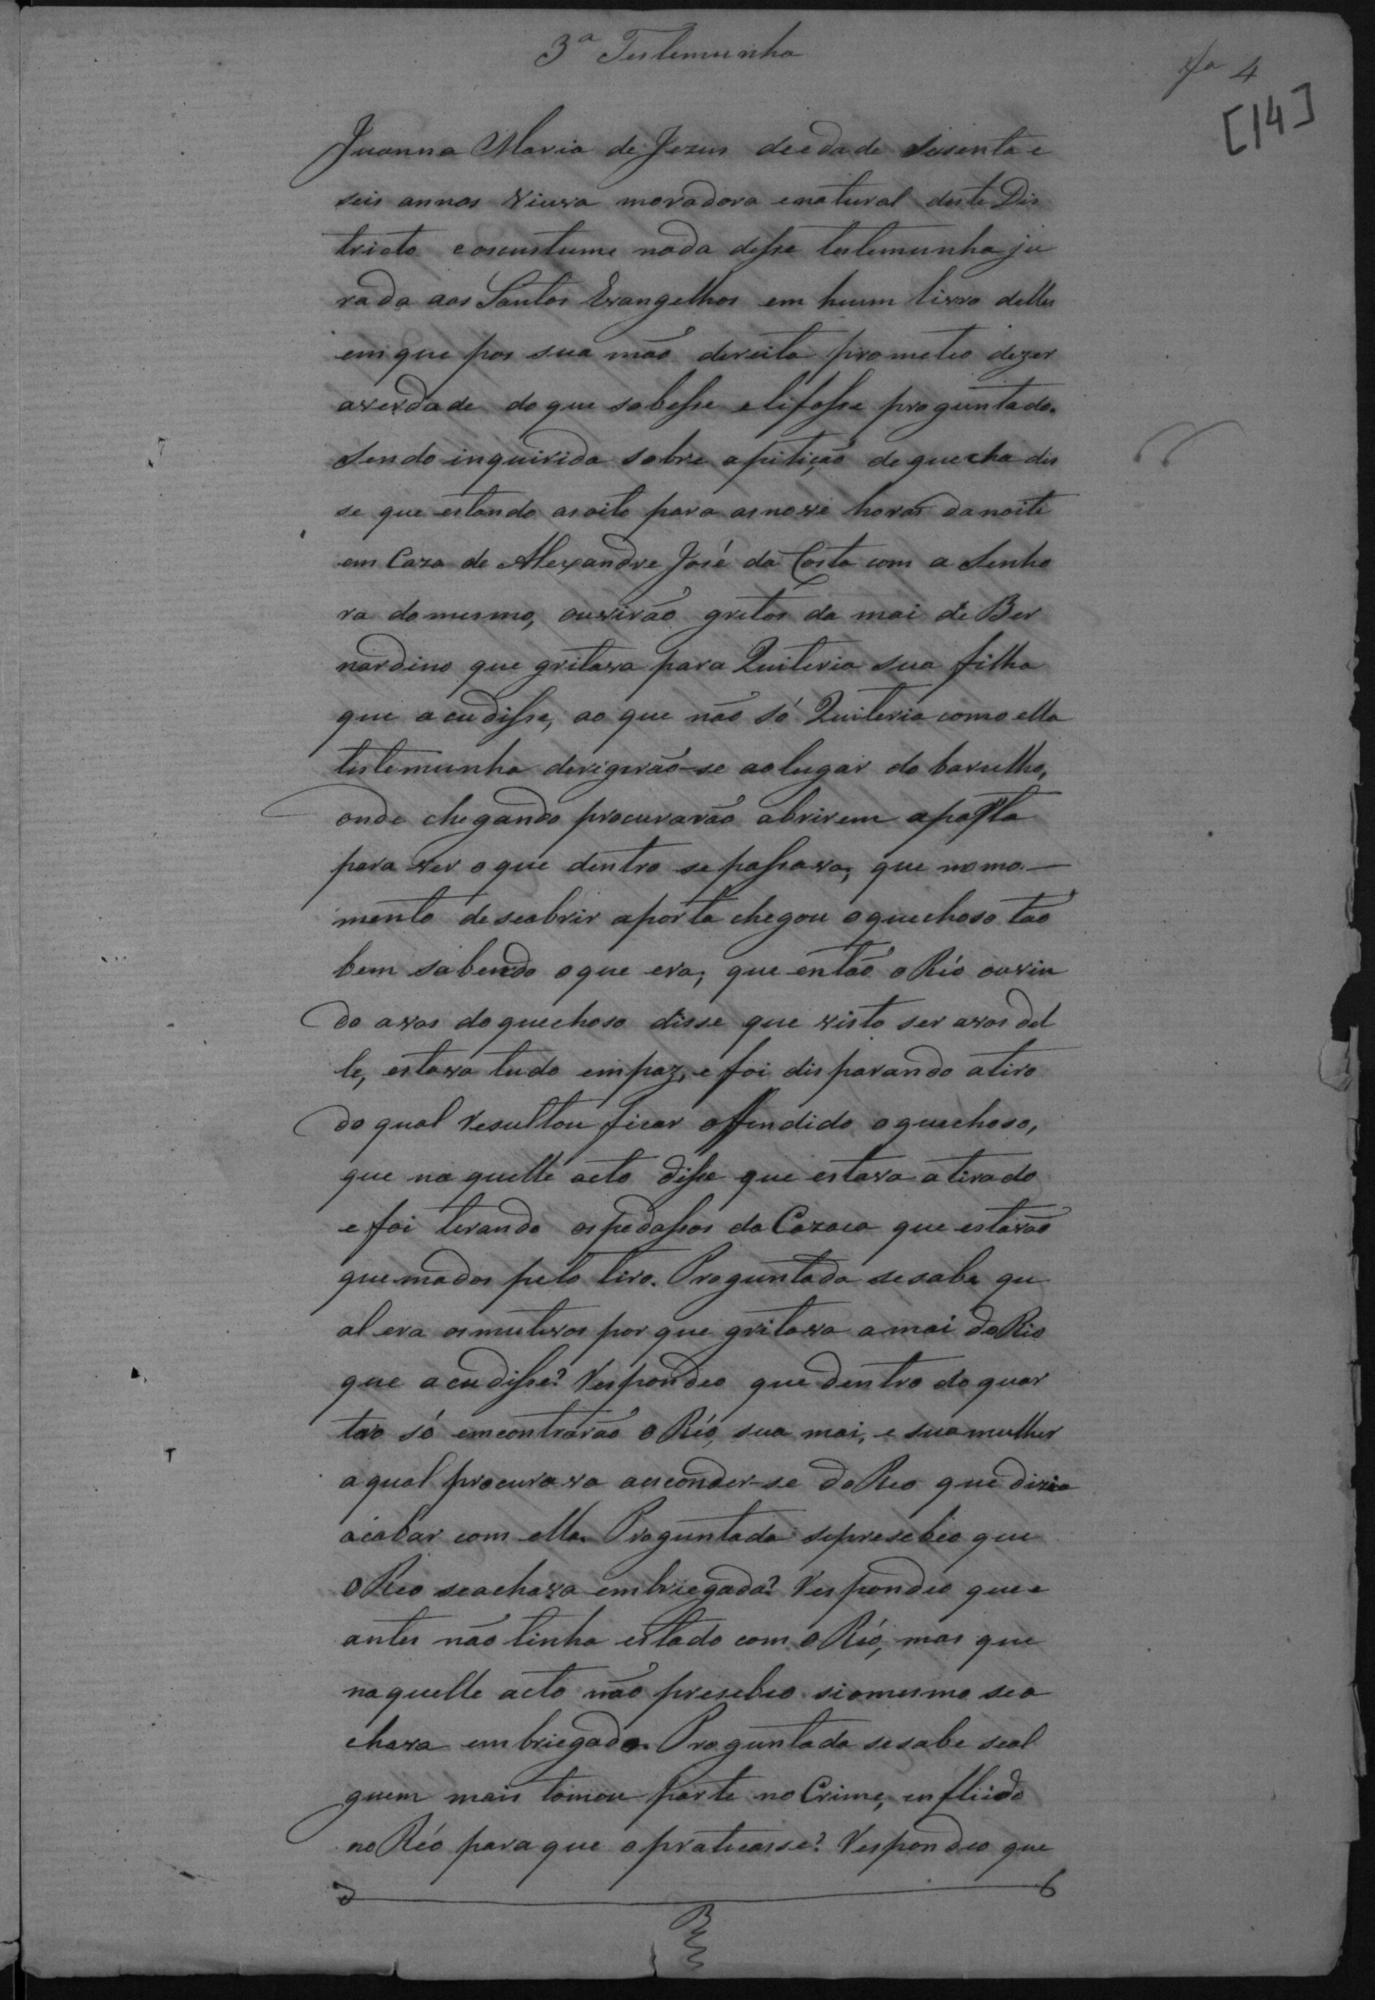 3ª Testemunha
4
[14]
Juanna Maria de Jezus deedade Sesenta e
seis annos viuva moradora enatural deste Dis
tricto eoscustume nada disse testemunha ju
rada aos Santos Evangelhos em hum livro delles
emque pos sua mão dereita prometeo dizer
averdade doque sobesse elifosse proguntado.
Sendo inquirida sobre apitição de quecha dis
se que estando asoito para asnove horas danoite
em Caza de Alexandre José da Costa com a Senho
ra domesmo, ouvirão gritos da mai de Ber
nardino que gritava para Quiteria sua filha
que acudisse, ao que não só Quiteria como ella
testemunha derigirão-se aolugar do barulho,
onde chegando procurarão abrirem aporta
para ver oque dentro sepassava, que nomo-
mento deseabrir aporta chegou oquechoso tão
bem sabendo oque era, que então o Réo ouvin
do avos doquechoso disse que visto ser avos del
le, estava tudo empaz, e foi disparando atiro
do qual resultou ficar offendido oquechoso,
que naquelle acto disse que estava atirado
e foi tirando ospedassos da Cazaca que estavão
quemados pelo tiro. Proguntada sesabe qu
al era osmutivos porque gritava amai do Rio
que acudisse? Respondeo que dentro doquar
to só emcontrarão o Réo, sua mai, e suamulher
aqual procurava aesconder-se do Reo que dizia
acabar com ella. Proguntada sepresebeo que
o Reo seachava embriegado? Respondeo que e
antes não tinha estado com o Réo, mas que
naquelle acto não presebeo siomesmo sea
chava embriegado. Proguntada sesabe seal
guem mais tomou parte no Crime, enfluido
no Réo paraque opraticasse? Respondeo que